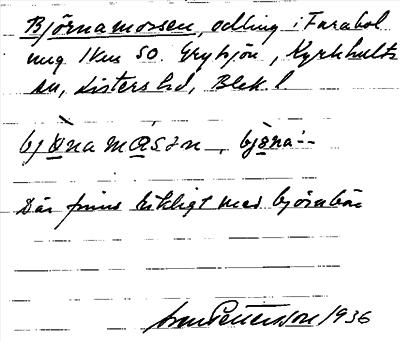 Björnamossen, odling i Farabol
ung. 1 km SO. Grytsjön, Kyrkhults
sn, Listers hd, Blek. l.
bjö̱na må̱sən, bjö̱na--
Där finns rikligt med björnbär
Pettersson 1936